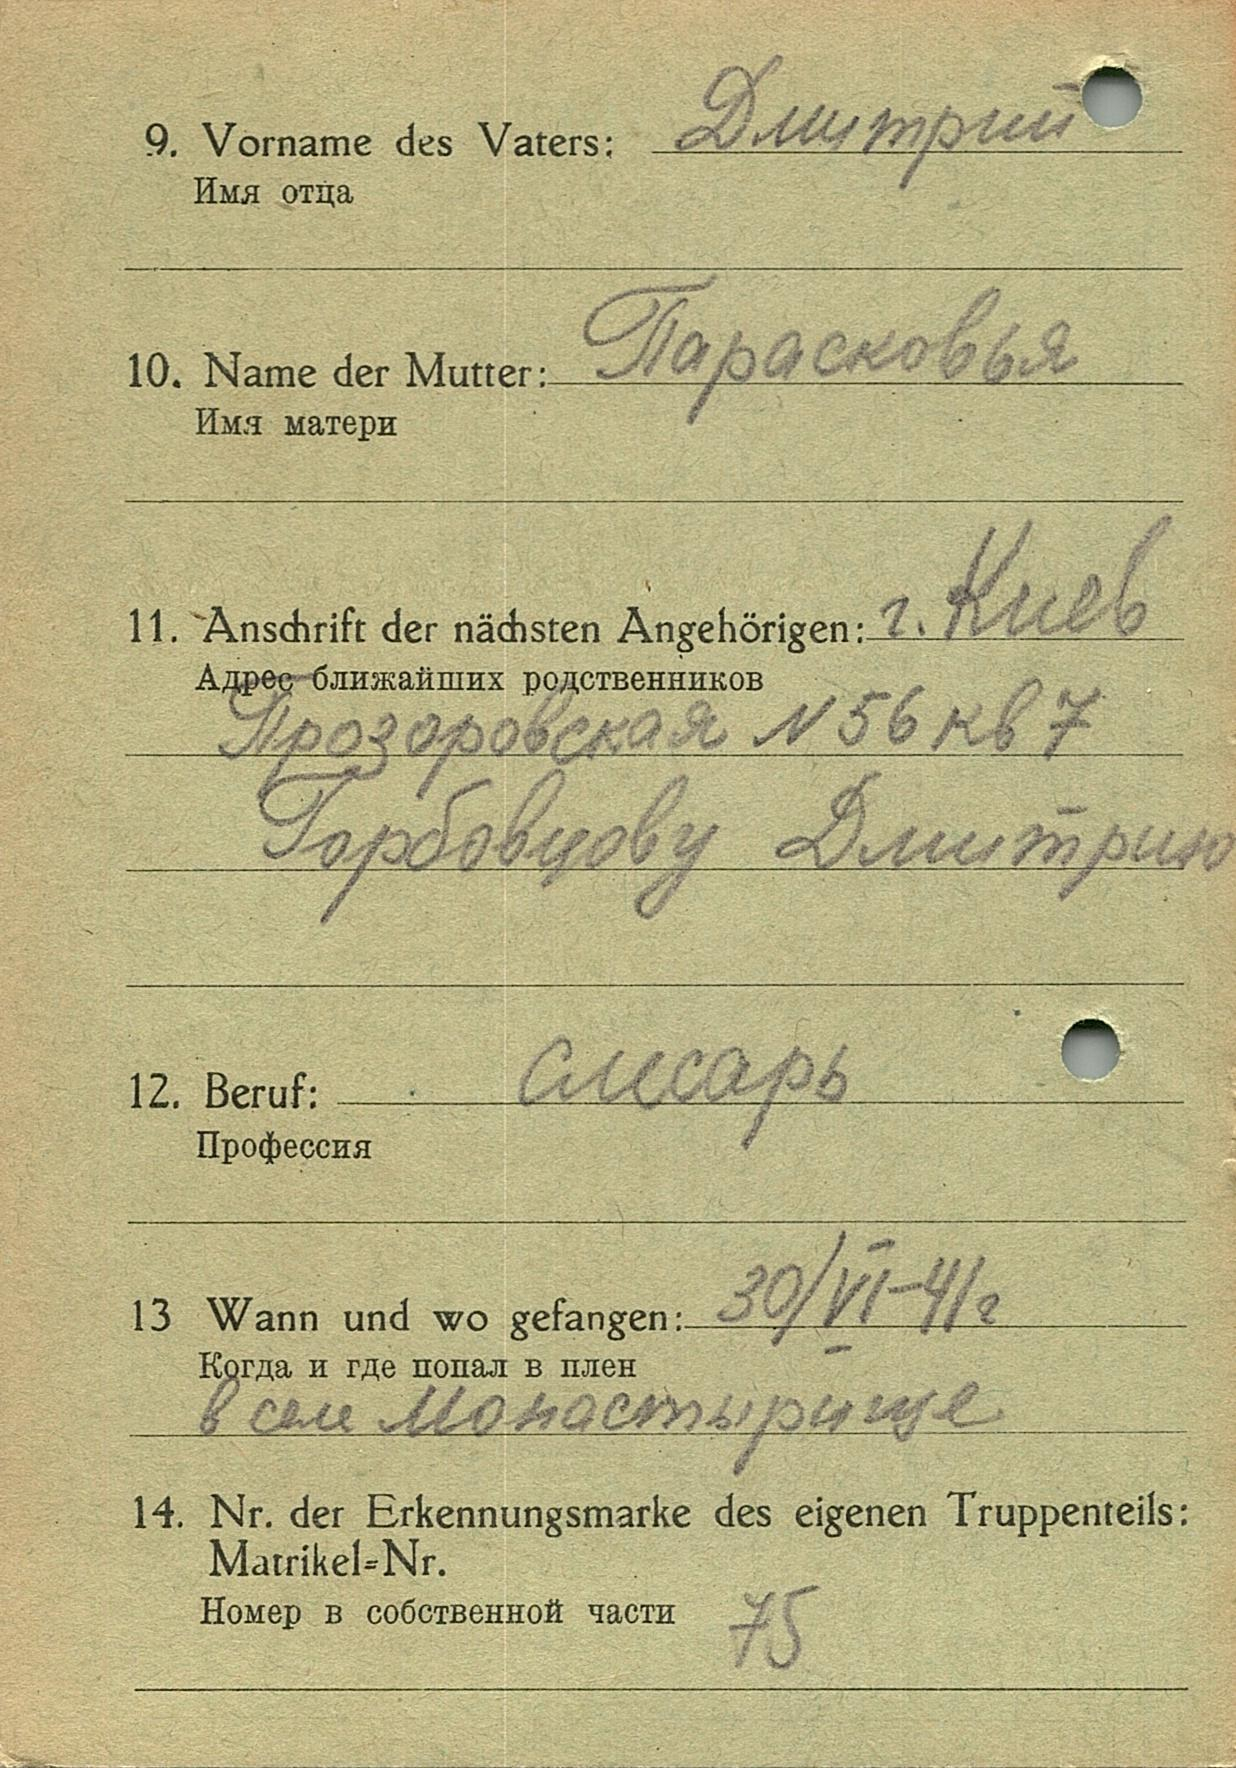 9. Vorname des Vaters: Дмитрий
Имя отца
10. Name der Mutter: Парасковья
Имя матери
11. Anschrift der nächsten Angehörigen: г. Киев
Адрес ближайших родственников
Прозоровская N 56 кв 7
Горбовцову Дмитрию
12. Beruf: слесарь
Профессия
13 Wann und wo gefangen: 30/VI-41г
Когда и где попал в плен
в селе Монастырище
14. Nr. der Erkennungsmarke des eigenen Truppenteils:
Matrikel=Nr.
Номер в собственной части 75